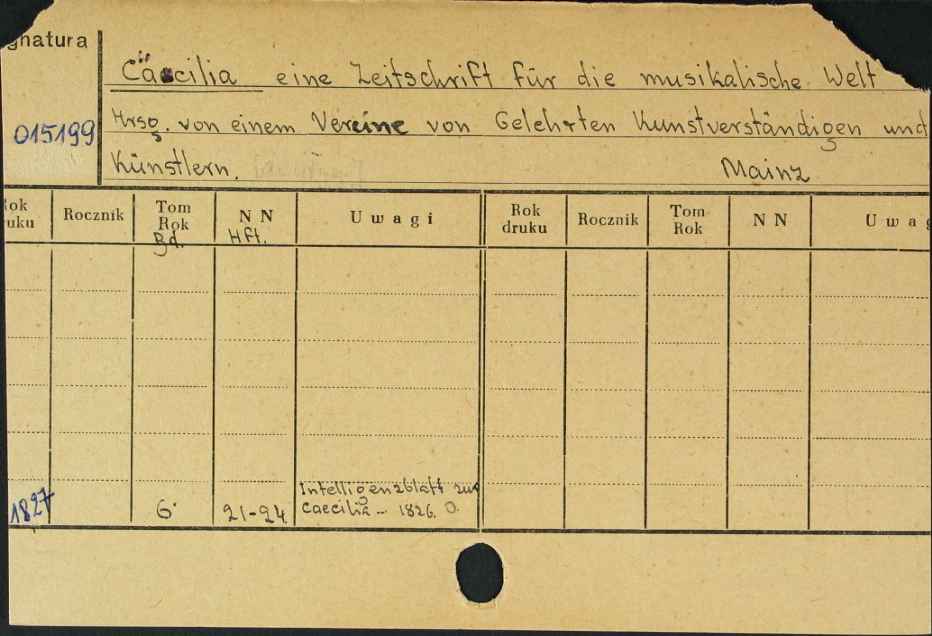 gnatura
Cäecilia eine Zeitschrift für die musikalische Welt
015199
Hrsg. von einem Vereine von Gelehrten Kunstverständigen und
Künstlern. Mainz
Rok druku Rocznik Tom Rok NN Uwagi Rok druku Rocznik Tom Rok NN Uwag
Bd. Hft.
Intelligenzblatt zur
1827 6 21-24 Caecilia - 1826.